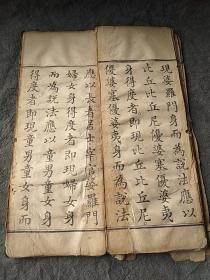 現婆羅門身而為說法應以
比丘比丘尼優婆塞優婆夷
身得度者即現比丘比丘尼
優婆塞優婆夷身而為說法
應以長者居士宰官婆羅門
婦女身得度者即現婦女身
而為說法應以童男童女身
得度者即現童男童女身而